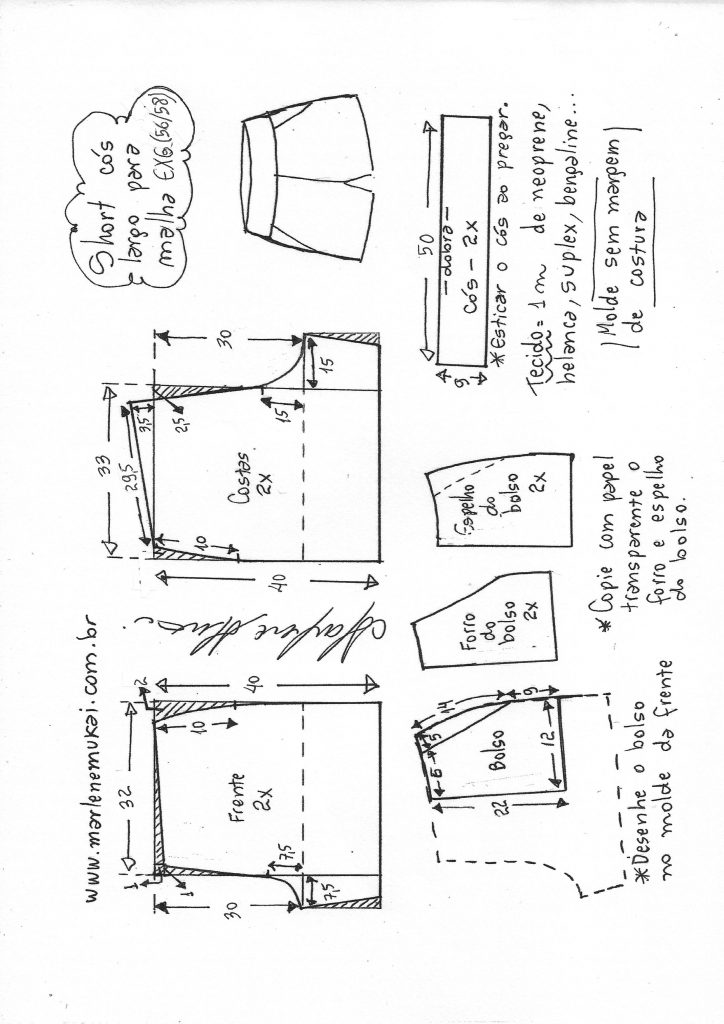 www.marlenemukai.com.br
Short cós
largo para
malha EXG (56/58)
32
2
1
1
10
40
Frente
2x
30
7,5
7,5
33
29,5
3,5
2,5
10
40
Costas
2x
15
15
30
14
9
5
6
Bolso
12
22
*Desenhe o bolso
no molde da frente
Forro
do
bolso
2x
Espelho
do
bolso
2x
*Copie com papel
transparente o
forro e espelho
do bolso.
50
-dobra-
cós - 2x
9
*Esticar o cós ao pregar.
Tecido = 1m de neoprene,
helanca, suplex, bengaline...
Molde sem margem
de costura